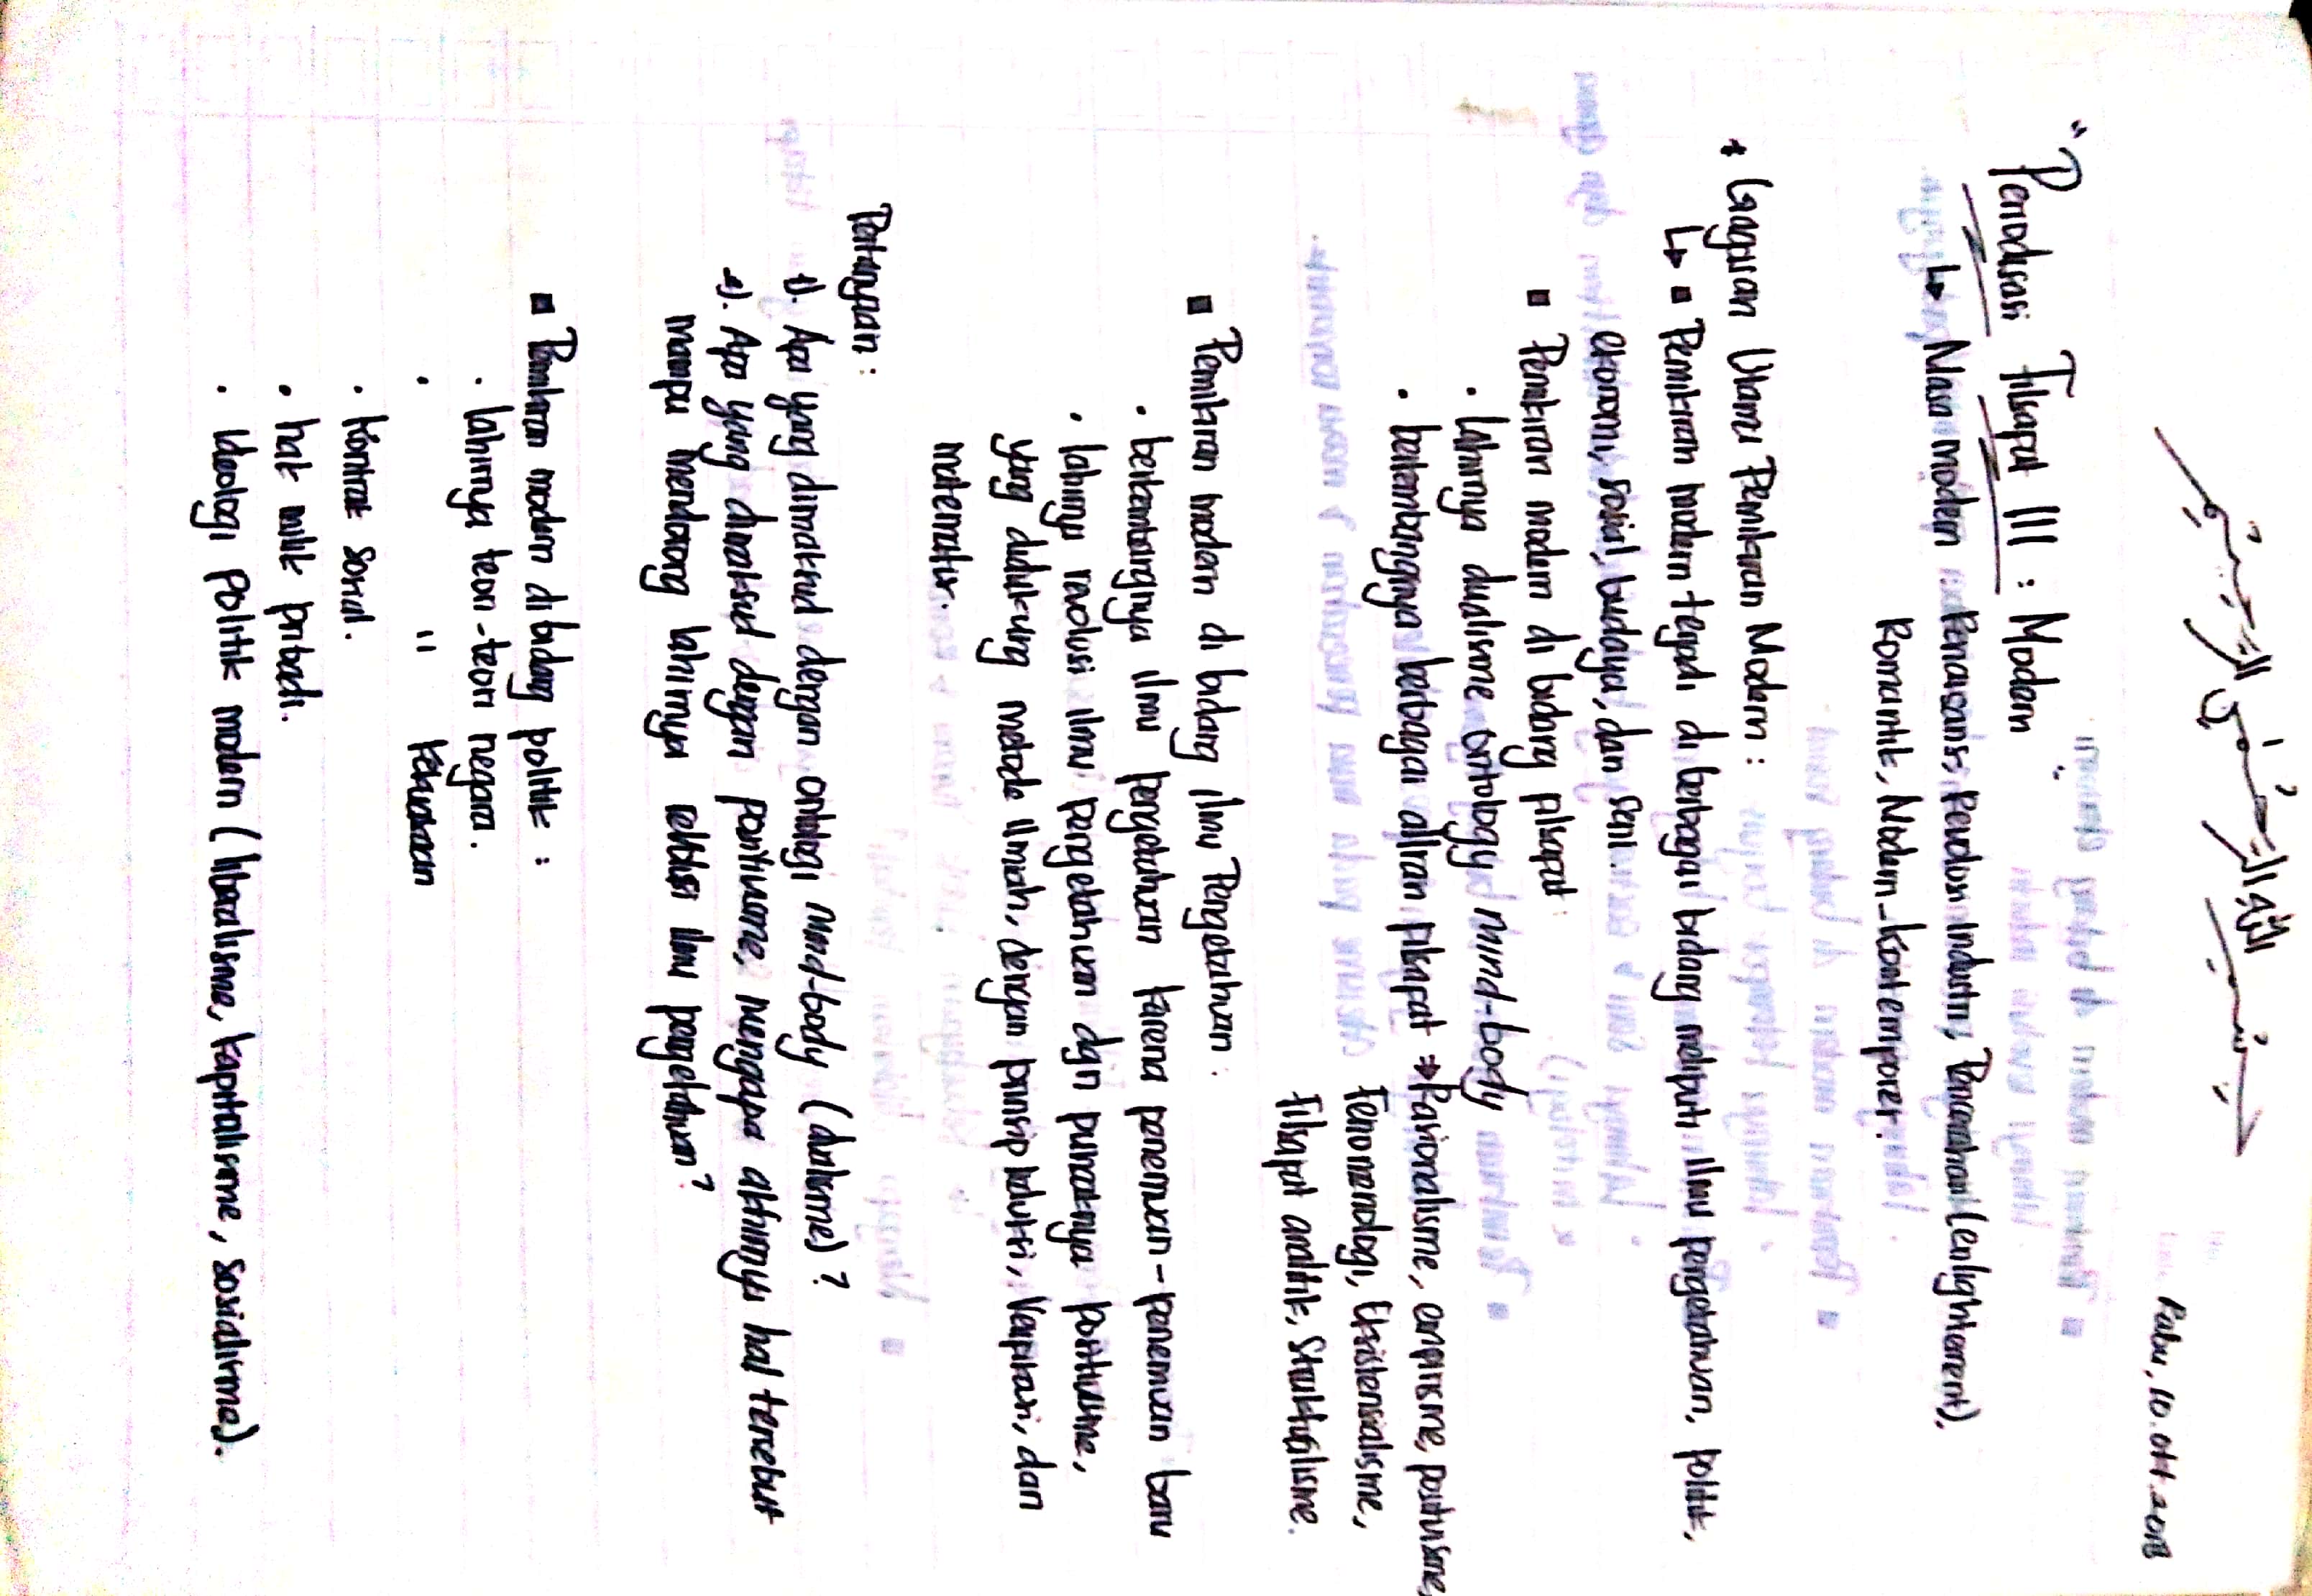 بِسْمِ اللهِ الرَّحْمٰنِ الرَّحِيْمِ
Rabu, 10.okt.2018
"Periodisasi Filsafat III : Modern"
↳ Masa modern : Renaisans, Revolusi Industri, Pencerahan (enlightenment),
Romantik, Modern-kontemporer.
* Gagasan Utama Pemikiran Modern :
↳ ▪ Pemikiran modern terjadi di berbagai bidang meliputi ilmu pengetahuan, politik,
ekonomi, sosial, budaya, dan seni.
▪ Pemikiran modern di bidang filsafat
• Lahirnya dualisme ontology mind-body
• berkembangnya berbagai aliran filsafat → Rasionalisme, empirisme, positivisme,
Fenomenologi, Eksistensialisme,
Filsafat analitik, Strukturalisme.
▪ Pemikiran modern di bidang ilmu Pengetahuan :
• berkembangnya ilmu pengetahuan karena penemuan-penemuan baru
• lahirnya revolusi ilmu pengetahuan dgn puncaknya positivisme,
yang didukung metode ilmiah, dengan prinsip , Verifikasi, dan
matematis.
Pertanyaan :
1). Apa yang dimaksud dengan ontologi mind-body (dualisme) ?
2). Apa yang dimaksud dengan positivisme, mengapa akhirnya hal tersebut
mampu mendorong lahirnya revolusi ilmu pengetahuan?
▪ Pemikiran modern di bidang politik :
• lahirnya teori-teori negara.
• " kekuasaan
• Kontrak sosial.
• hak milik pribadi.
• Ideologi Politik modern (liberalisme, kapitalisme, sosialisme).